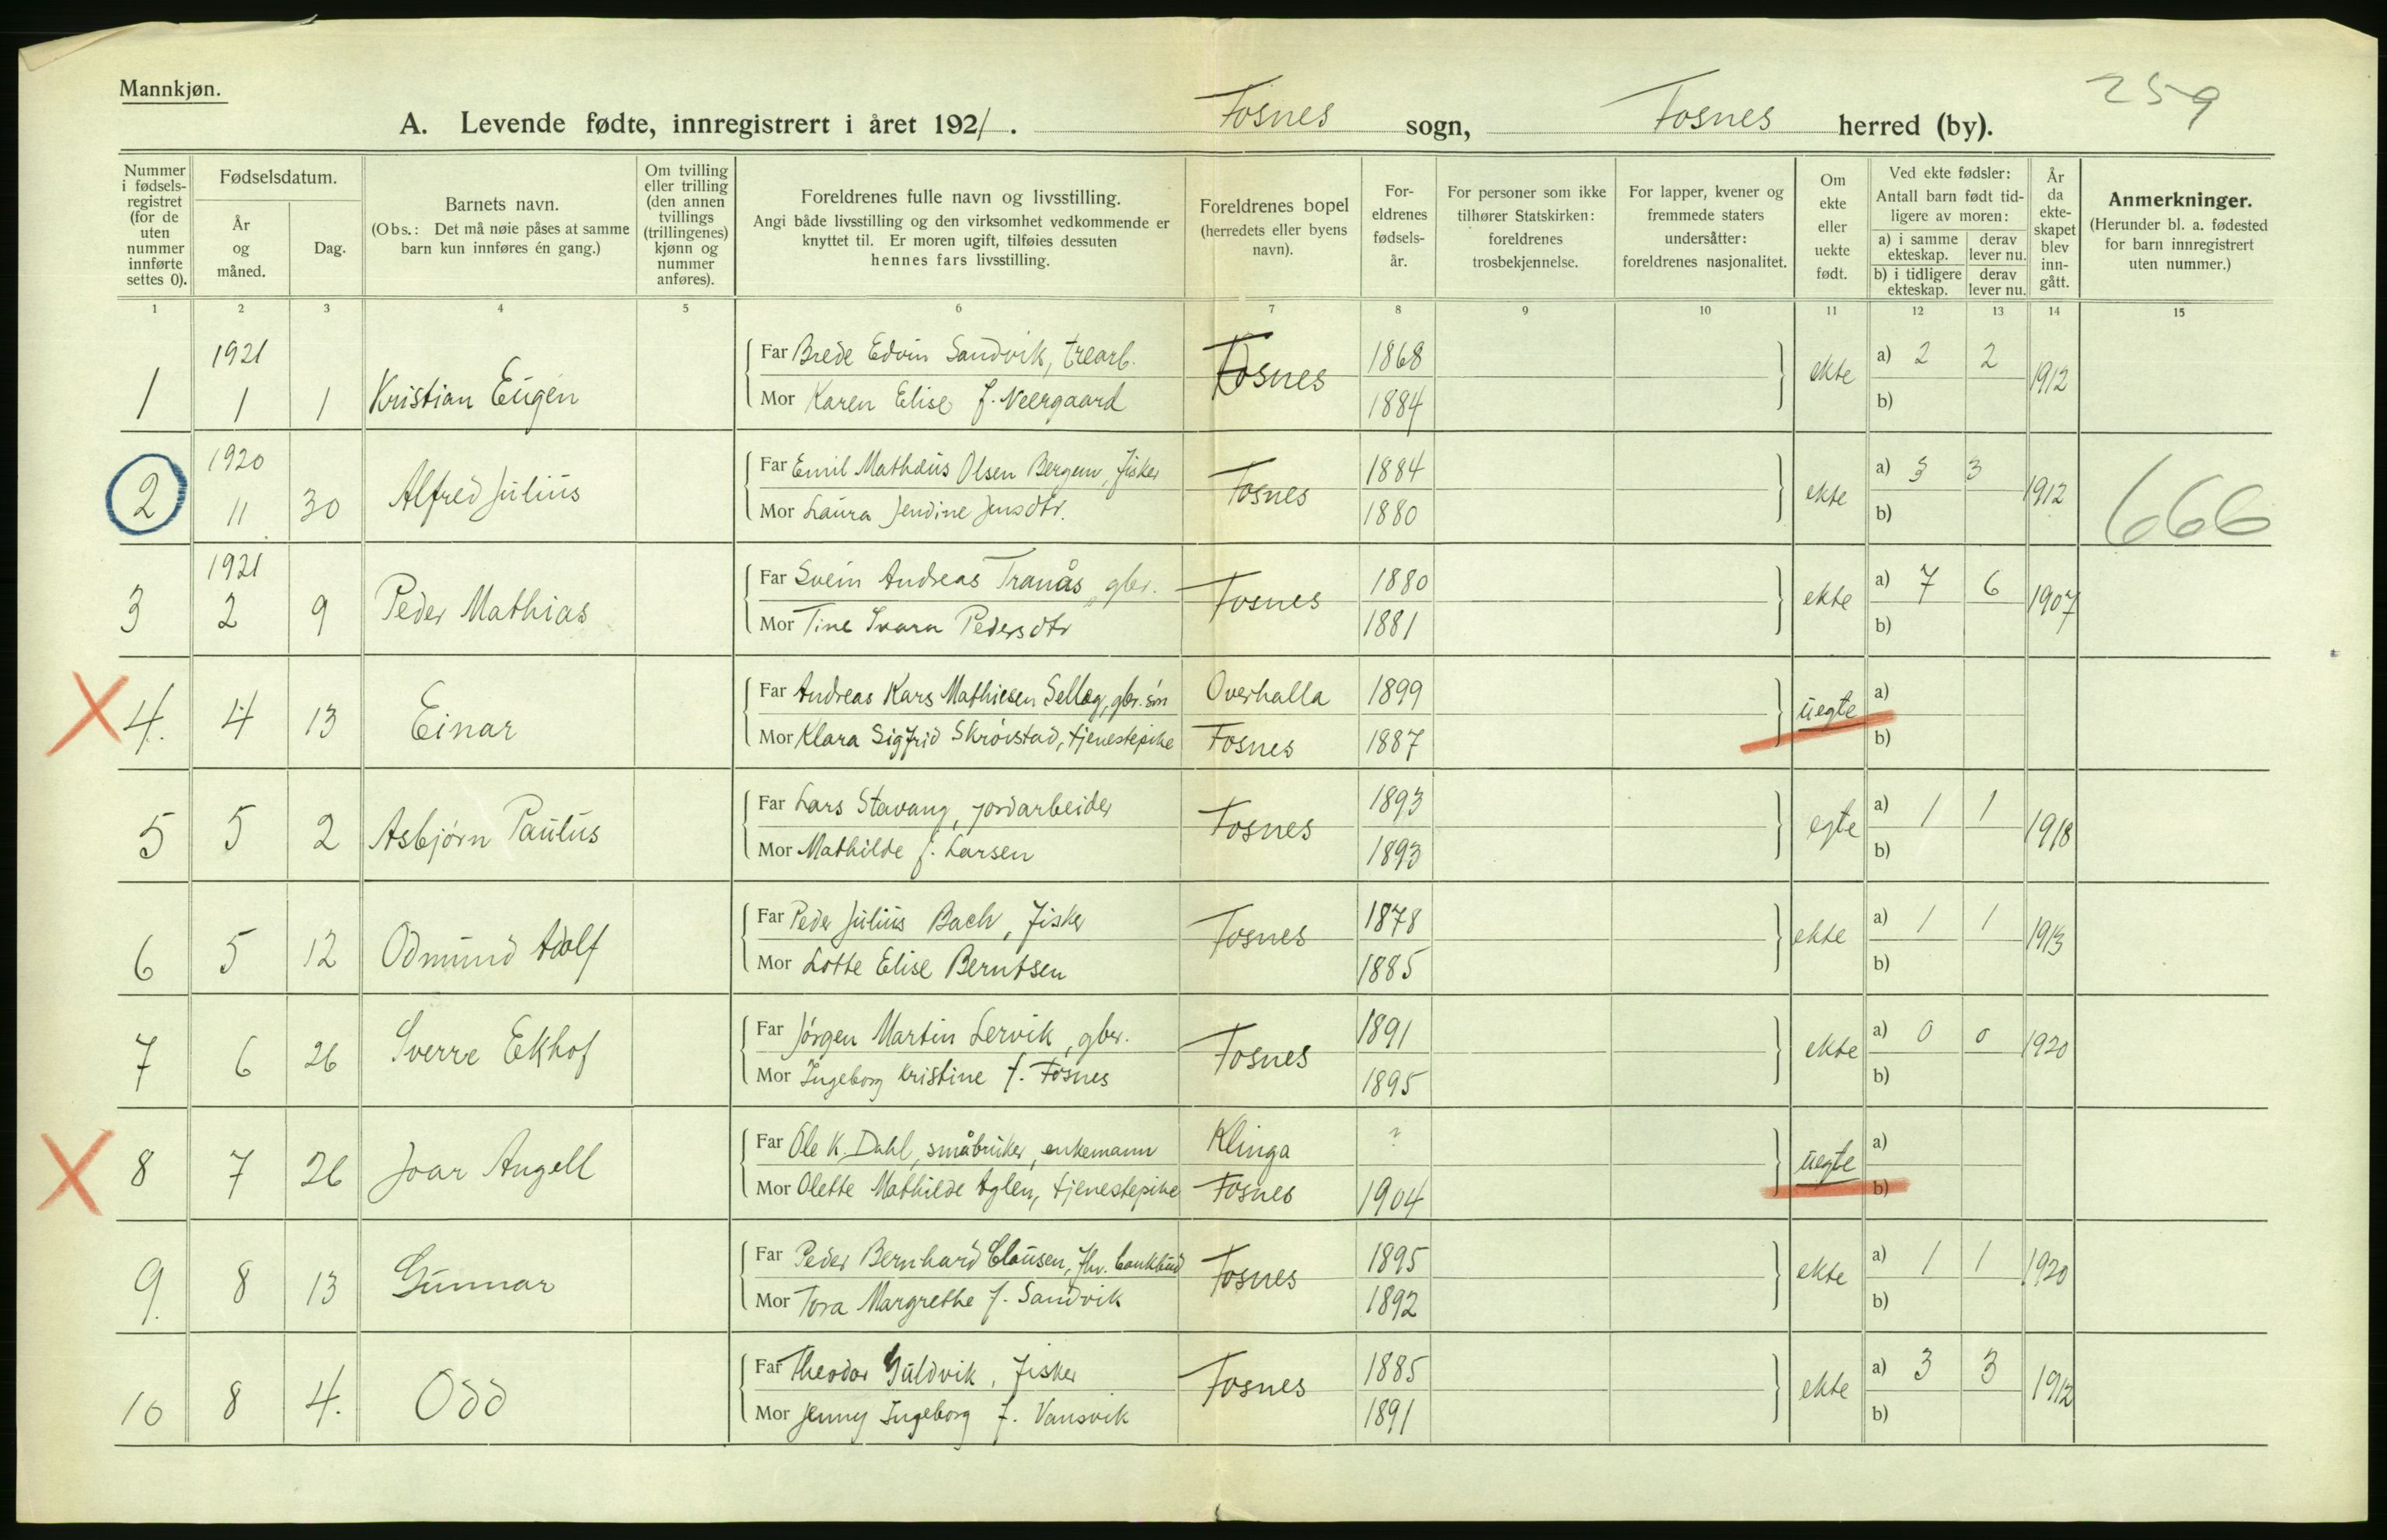 259
Mannkjøn.
A. Levende fødte, innregistrert i året 1921. Fosnes sogn, Fosnes herred (by).
Nummer i fødselsregistret (for de uten nummer innførte settes 0).
Fødselsdatum.
År og måned.
Dag.
Barnets navn.
(Obs.: Det må nøie påses at samme barn kun innføres én gang.)
Om tvilling eller trilling (den annen tvillings (trillingenes) kjønn og nummer anføres).
Foreldrenes fulle navn og livsstilling.
Angi både livsstilling og den virksomhet vedkommende er knyttet til. Er moren ugift, tilføies dessuten hennes fars livsstilling.
Foreldrenes bopel (herredets eller byens navn).
Foreldrenes fødselsår.
For personer som ikke tilhører Statskirken: foreldrenes trosbekjennelse.
For lapper, kvener og fremmede staters undersåtter: foreldrenes nasjonalitet.
Om ekte eller uekte født.
Ved ekte fødsler: Antall barn født tidligere av moren:
a) i samme ekteskap. derav lever nu.
b) i tidligere ekteskap. derav lever nu.
År da ekteskapet blev inngått.
Anmerkninger.
(Herunder bl. a. fødested for barn innregistrert uten nummer.)
1 2 3 4 5 6 7 8 9 10 11 12 13 14 15
1 1921 1 1 Kristian Eugén Far Brede Edvin Sandvik, trearb. Fosnes 1868 ekte a) 2 2 1912
Mor Karen Elise f. Neergaard 1884 b)
2 1920 11 30 Alfred Julius Far Emil Mathæus Olsen Bergem, fisker Fosnes 1884 ekte a) 3 3 1912 666
Mor Laura Jendine Jensdtr. 1880 b)
3 1921 2 9 Peder Mathias Far Svein Andreas Tranås, gbr. Fosnes 1880 ekte a) 7 6 1907
Mor Tine Pedersdtr 1881 b)
X 4. 4 13 Einar Far Andreas Kars Mathiesen Selleg, gbr. søn Overhalla 1899 uegte a)
Mor Klara Sigfrid Skrøvstad, tjenestepike Fosnes 1887 b)
5 5 2 Asbjørn Paulus Far Lars Stavang, jordarbeider Fosnes 1893 egte a) 1 1 1918
Mor Mathilde f. Larsen 1893 b)
6 5 12 Odmund Adolf Far Peder Julius Bach, fisker Fosnes 1878 ekte a) 1 1 1913
Mor Lotte Elise Berntsen 1885 b)
7 6 26 Sverre Ekhof Far Jørgen Martin Lervik, gbr. Fosnes 1891 ekte a) 0 0 1920
Mor Ingeborg Kristine f. Fosnes 1895 b)
X 8 7 26 Joar Angell Far Ole K. Dahl, småbruker, enkemann Klinga ? uegte a)
Mor Olette Mathilde Aglen, tjenestepike Fosnes 1904 b)
9. 8 13 Gunnar Far Peder Bernhard Clausen, Fosnes 1895 ekte a) 1 1 1920
Mor Tora Margrethe f. Sandvik 1892 b)
10 8 4. Odd Far Theodor Guldvik, fisker Fosnes 1885 ekte a) 3 3 1912
Mor Jenny Ingeborg f. Vansvik 1891 b)